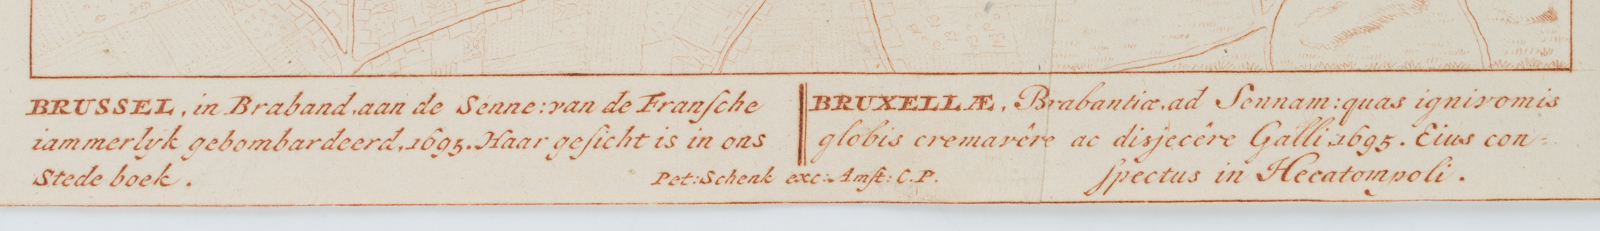 BRUSSEL, in Braband, aan de Senne: van de Franſche
iammerlyk gebombardeerd, 1695. Haar geſicht is in ons
Stede boek.
BRUXELLÆ, Brabantiæ, ad Sennam: quas ignivomis
globis cremavêre ac disjecêre Galli 1695. Eius con-
ſpectus in Hecatompoli.
Pet: Schenk exc: Amſt: C.P.